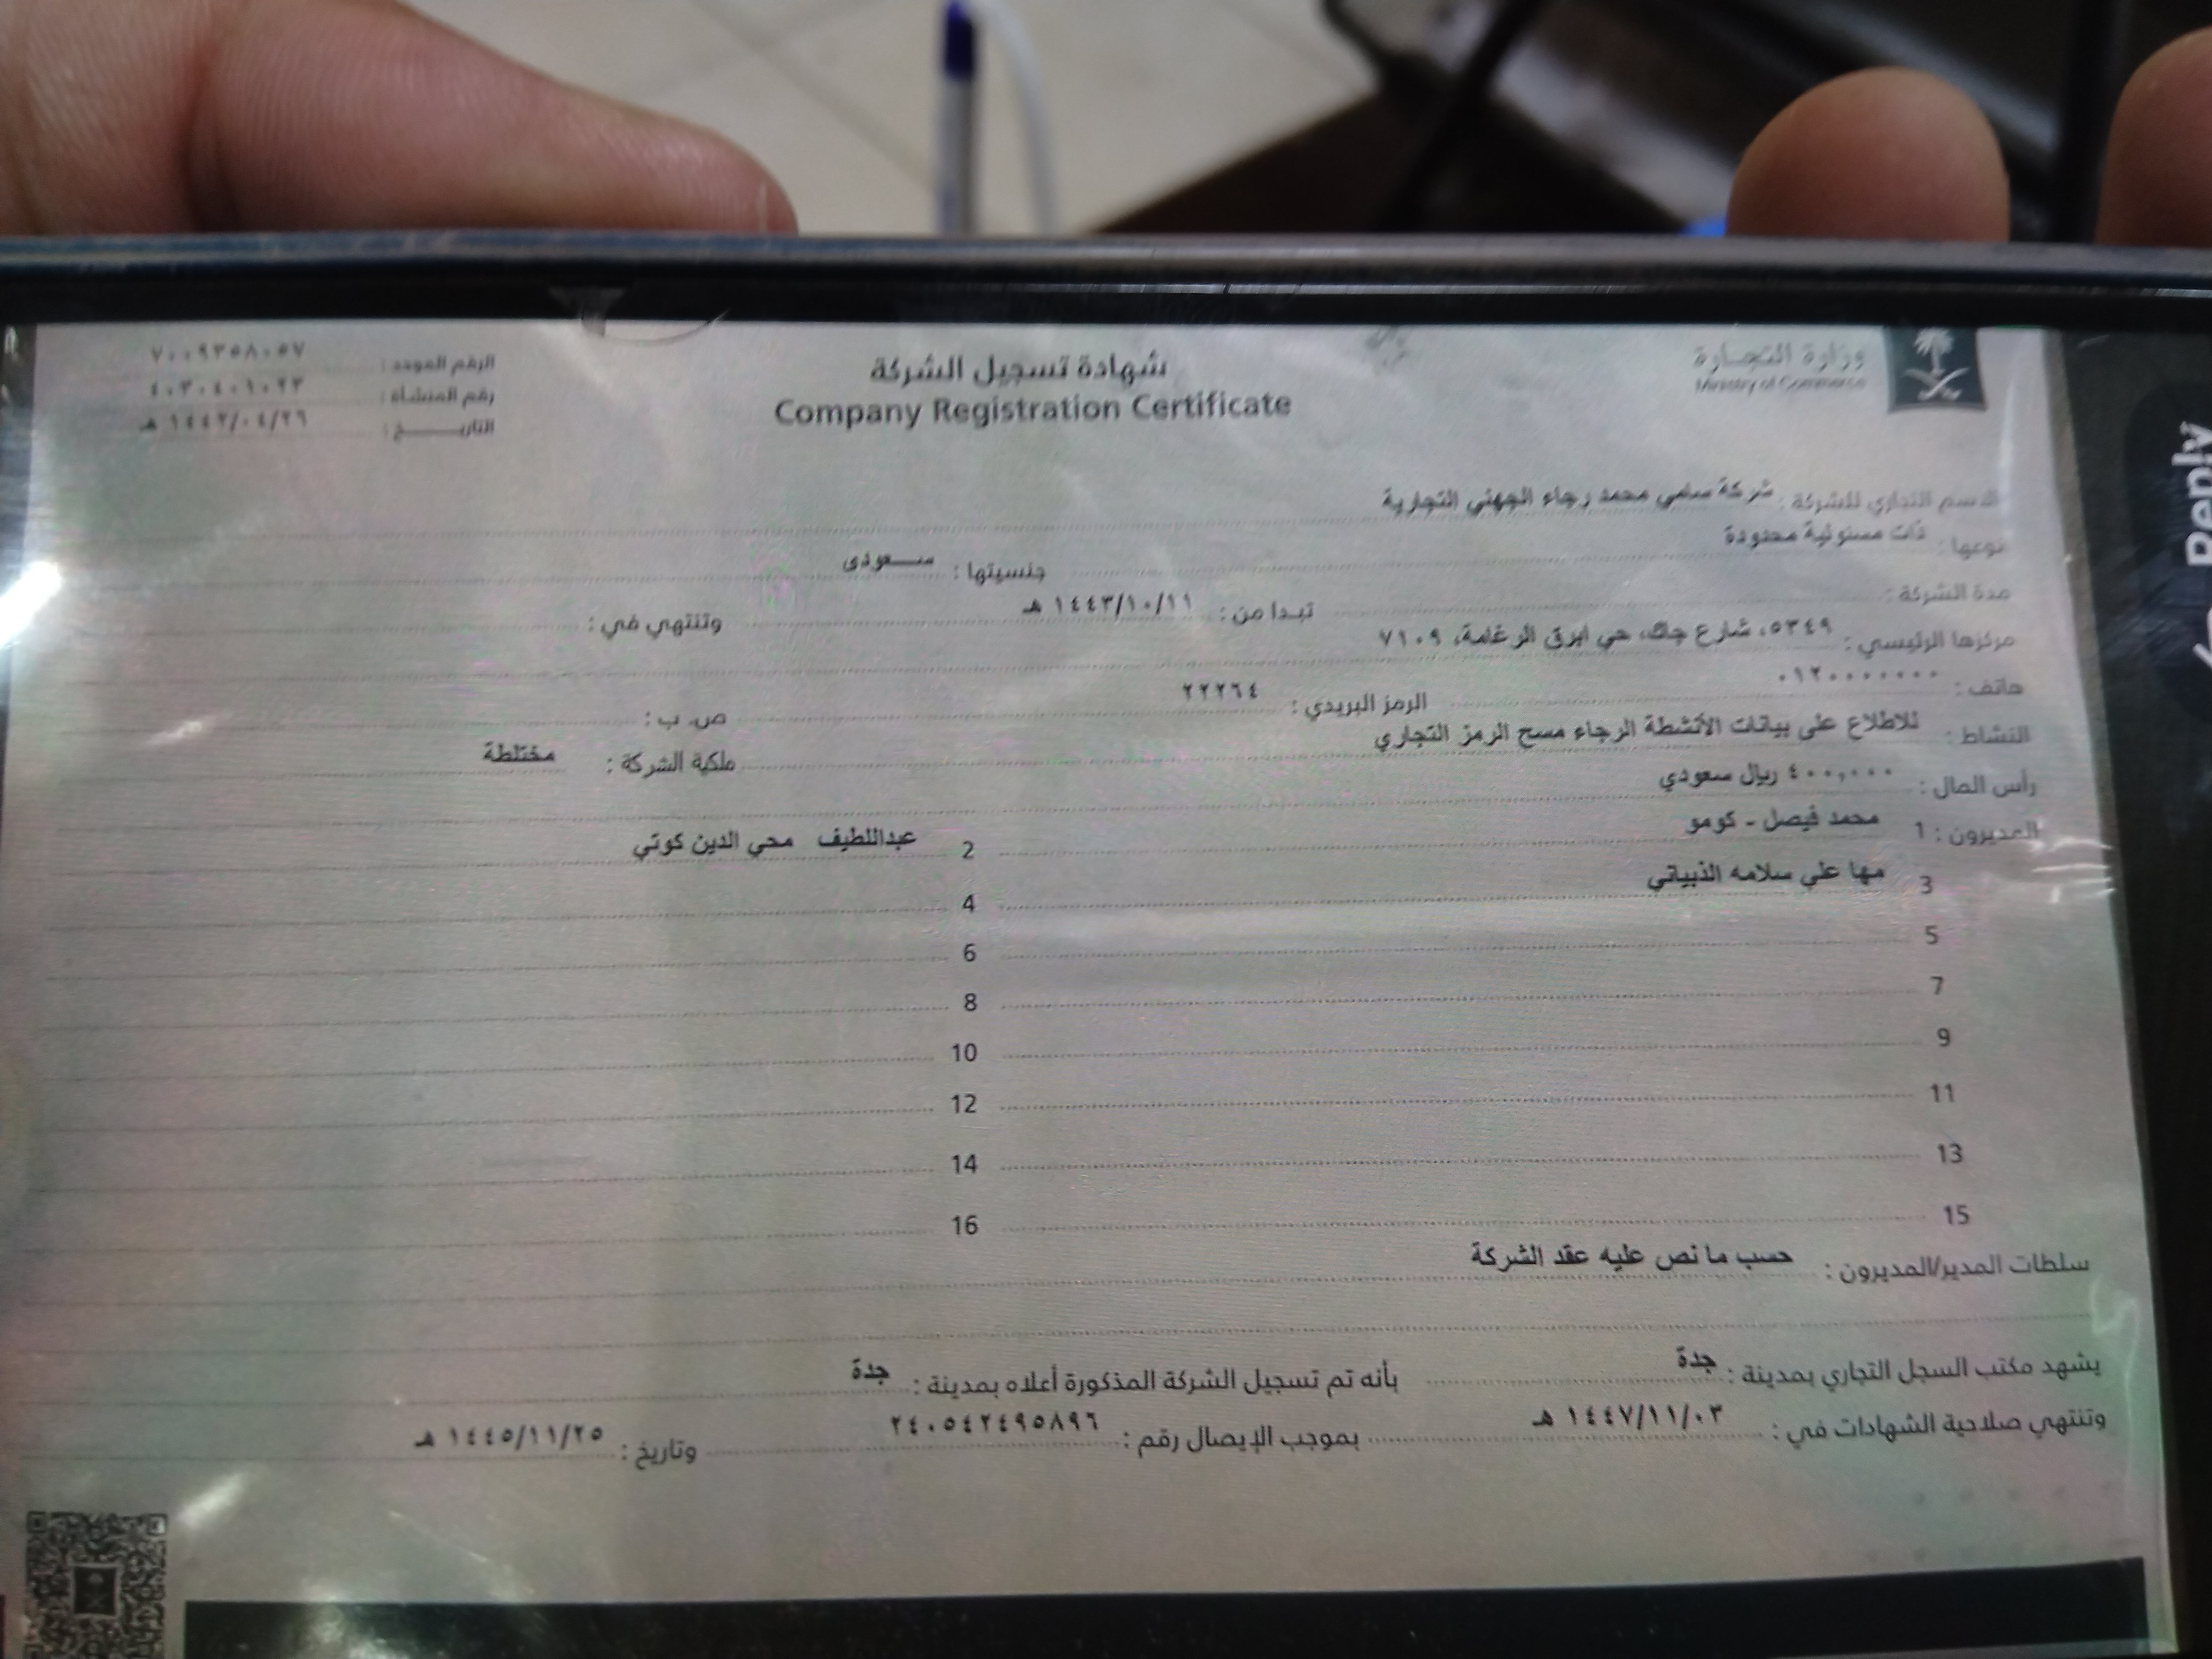 وزارة التجارة
Ministry of Commerce
شهادة تسجيل الشركة
Company Registration Certificate
الرقم الموحد : ٧٠٠٩٣٥٨٠٥٧
رقم المنشأة : ٤٠٣٠٤٠١٠٢٣
التاريـــــخ : ١٤٤٢/٠٤/٢٦ هـ
الاسم التجاري للشركة : شركة سامي محمد رجاء الجهني التجارية
نوعها : ذات مسئولية محدودة جنسيتها : سعودى
مدة الشركة : تبدا من : ١٤٤٣/١٠/١١ هـ وتنتهي في :
مركزها الرئيسي : ٥٣٤٩، شارع جاك، حي ابرق الرغامة، ٧١٠٩
هاتف : ٠١٢٠٠٠٠٠٠٠ الرمز البريدي : ٢٢٢٦٤ ص. ب :
النشاط : للاطلاع على بيانات الأنشطة الرجاء مسح الرمز التجاري ملكية الشركة : مختلطة
رأس المال : ٤٠٠,٠٠٠ ريال سعودي
المديرون : 1 محمد فيصل - كومو 2 عبداللطيف محي الدين كوتي
3 مها علي سلامه الذبياني 4
5 6
7 8
9 10
11 12
13 14
15 16
سلطات المدير/المديرون : حسب ما نص عليه عقد الشركة
يشهد مكتب السجل التجاري بمدينة : جدة بأنه تم تسجيل الشركة المذكورة أعلاه بمدينة : جدة
وتنتهي صلاحية الشهادات في : ١٤٤٧/١١/٠٣ هـ بموجب الإيصال رقم : ٢٤٠٥٤٢٤٩٥٨٩٦ وتاريخ : ١٤٤٥/١١/٢٥ هـ
Reply